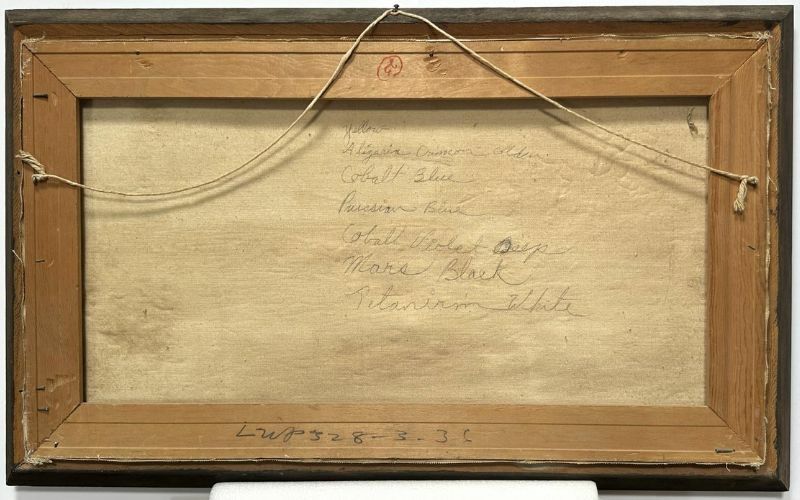 Yellow
Alizarin Crimson Golden
Cobalt Blue
Prussian Blue
Cobalt Violet Deep
Mars Black
Titanium White
LWP528-3-36